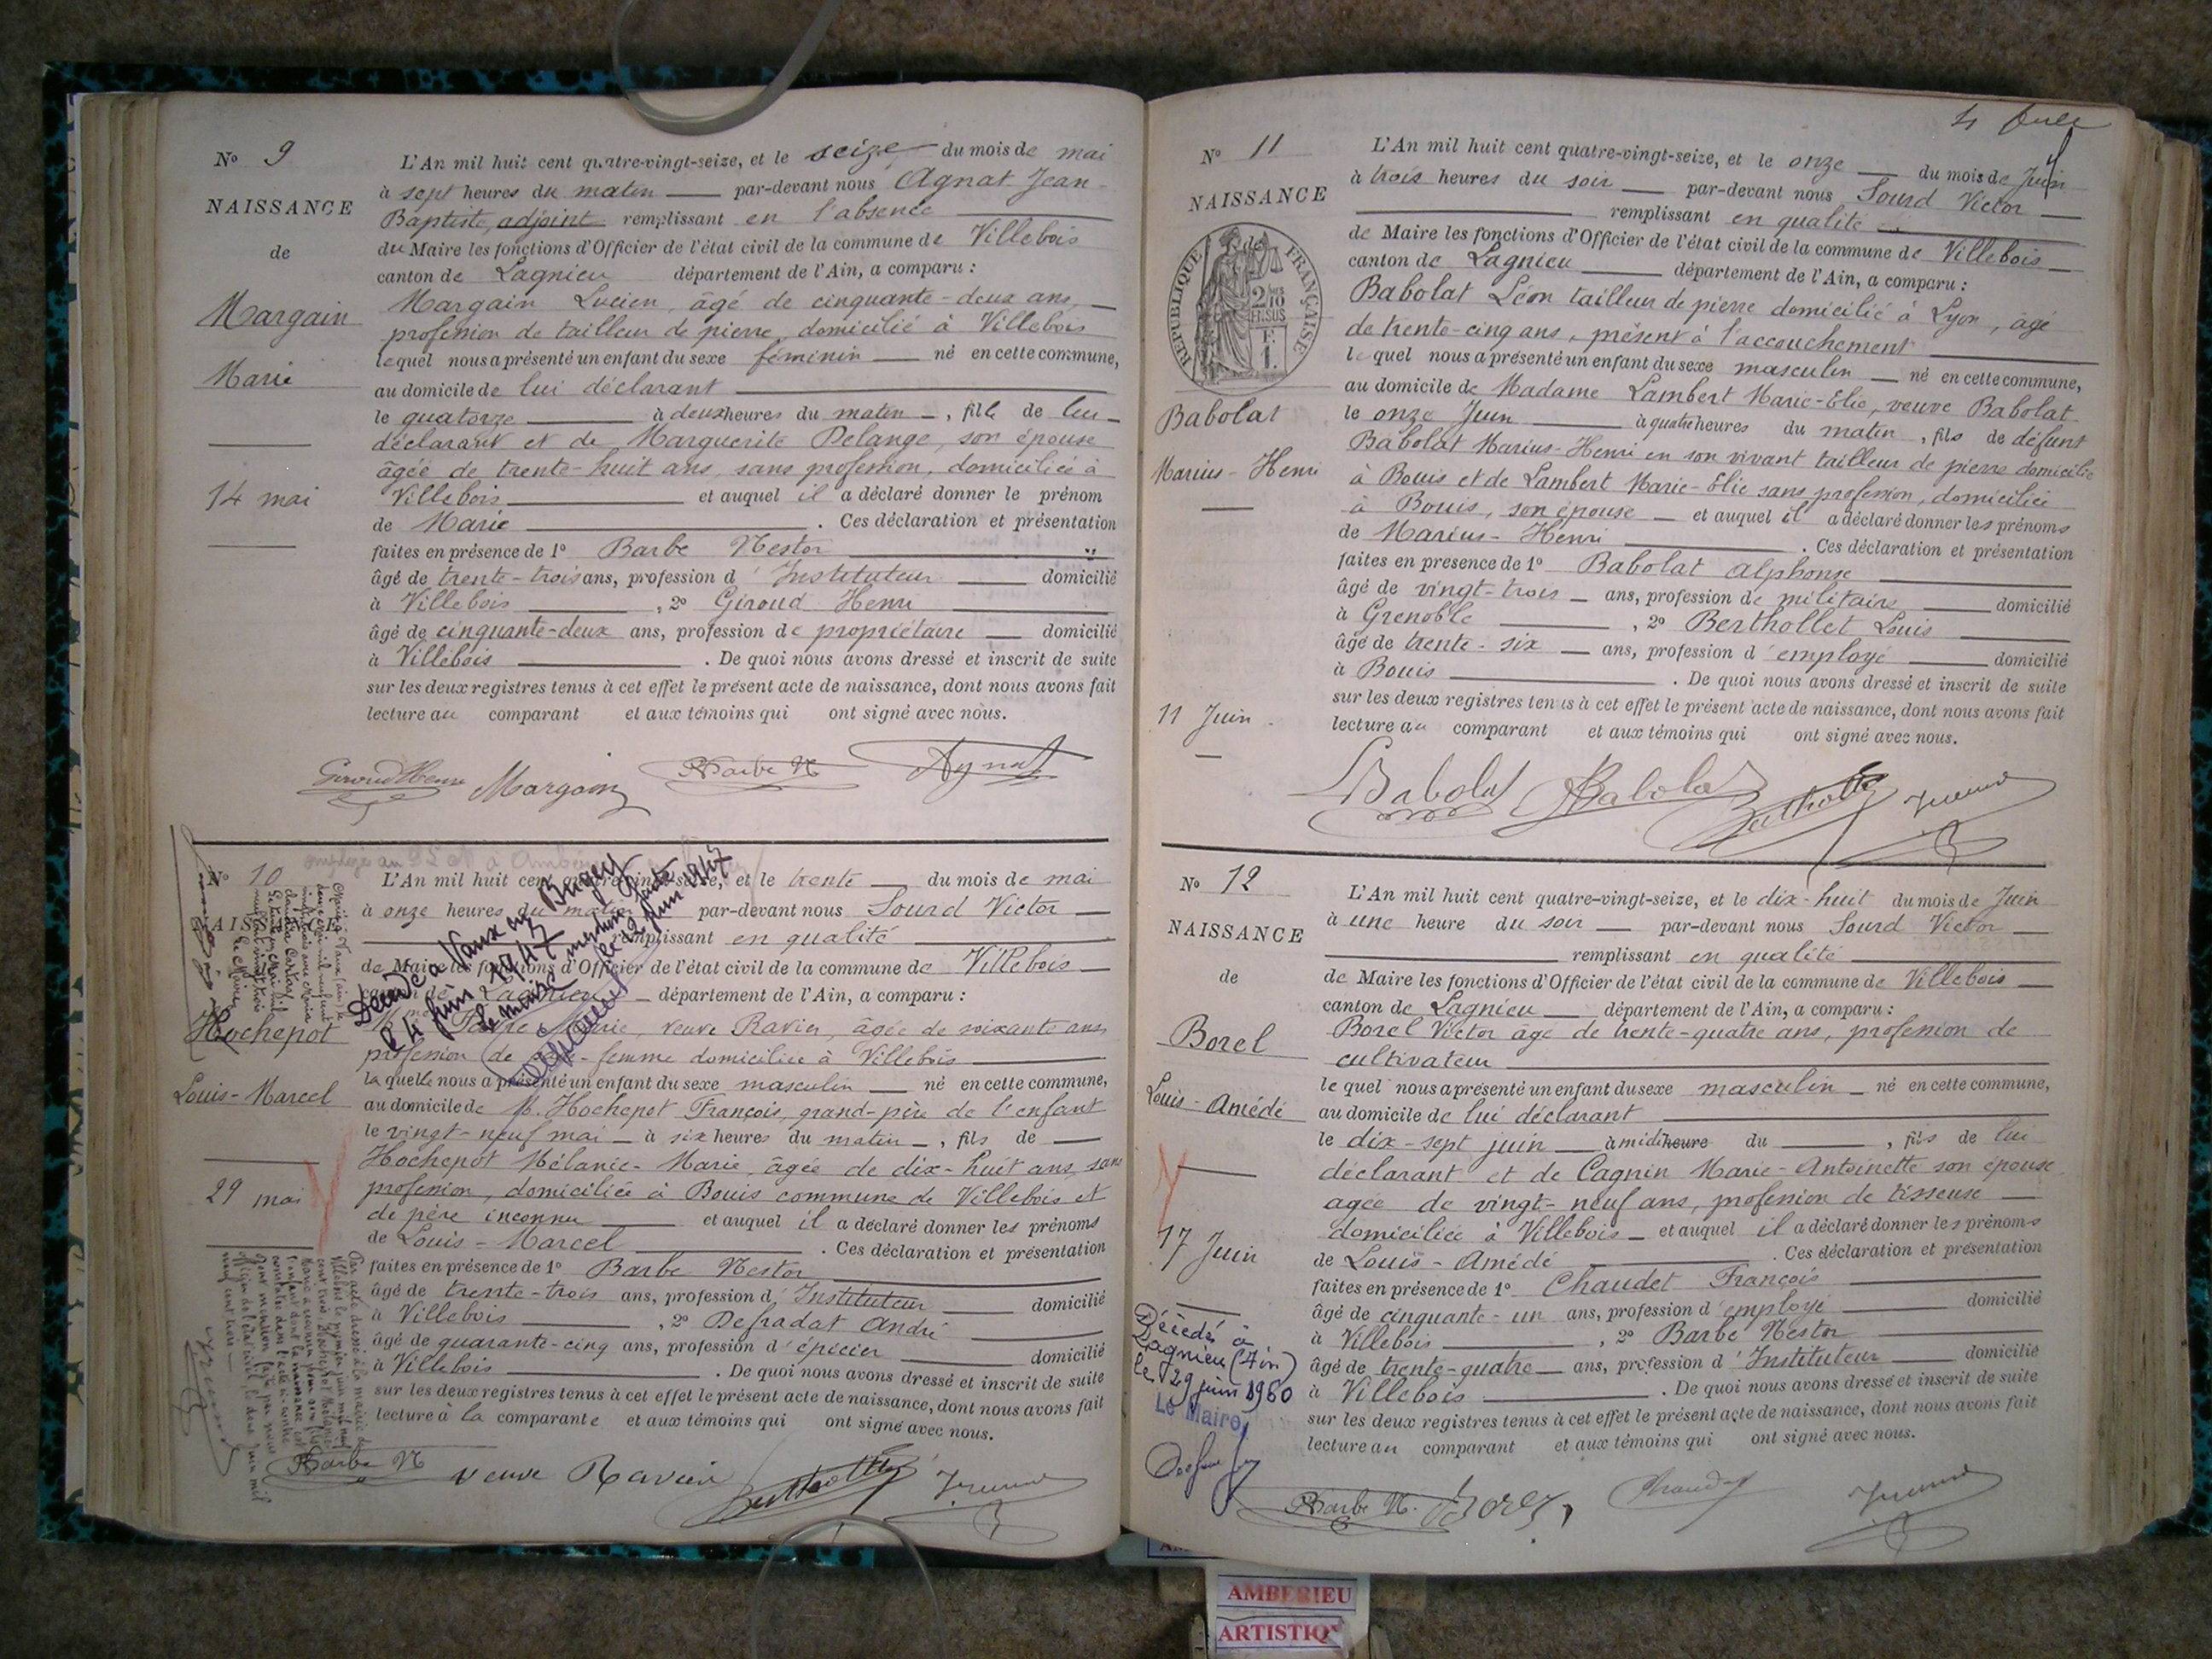 N° 9
NAISSANCE
de
Margain
Marie
14 mai
L'An mil huit cent quatre-vingt-seize, et le seize du mois de mai
à sept heures du matin par-devant nous Agnat Jean-
Baptiste, adjoint remplissant en l'absence
du Maire les fonctions d'Officier de l'état civil de la commune de Villebois
canton de Lagnieu département de l'Ain, a comparu :
Margain Lucien, âgé de cinquante-deux ans,
profession de tailleur de pierre, domicilié à Villebois
lequel nous a présenté un enfant du sexe féminin né en cette commune,
au domicile de lui déclarant
le quatorze à deux heures du matin, fille de lui
déclarant et de Marguerite Delange, son épouse
âgée de trente-huit ans, sans profession, domiciliée à
Villebois et auquel il a déclaré donner le prénom
de Marie. Ces déclaration et présentation
faites en présence de 1° Barbe Nestor
âgé de trente-trois ans, profession d'Instituteur domicilié
à Villebois, 2° Giroud Henri
âgé de cinquante-deux ans, profession de propriétaire domicilié
à Villebois. De quoi nous avons dressé et inscrit de suite
sur les deux registres tenus à cet effet le présent acte de naissance, dont nous avons fait
lecture au comparant et aux témoins qui ont signé avec nous.
Giroud Henri Margain Barbe N Agnat
N° 10
NAISSANCE
Hochepot
Louis-Marcel
29 mai
L'An mil huit cent quatre-vingt-seize, et le trente du mois de mai
à onze heures du matin par-devant nous Sourd Victor
remplissant en qualité
de Maire les fonctions d'Officier de l'état civil de la commune de Villebois
canton de Lagnieu département de l'Ain, a comparu :
Favre Marie, veuve Ravier, âgée de soixante ans,
profession de sage-femme domiciliée à Villebois
laquelle nous a présenté un enfant du sexe masculin né en cette commune,
au domicile de M. Hochepot François, grand-père de l'enfant
le vingt-neuf mai à six heures du matin, fils de
Hochepot Mélanie-Marie, âgée de dix-huit ans, sans
profession, domiciliée à Bouis commune de Villebois et
de père inconnu et auquel il a déclaré donner les prénoms
de Louis-Marcel. Ces déclaration et présentation
faites en présence de 1° Barbe Nestor
âgé de trente-trois ans, profession d'Instituteur domicilié
à Villebois, 2° Defradat André
âgé de quarante-cinq ans, profession d'épicier domicilié
à Villebois. De quoi nous avons dressé et inscrit de suite
sur les deux registres tenus à cet effet le présent acte de naissance, dont nous avons fait
lecture à la comparante et aux témoins qui ont signé avec nous.
Barbe N veuve Ravier
Décédé à Vaux en Bugey
le 4 juin 1947
mention faite
le 12 juin 1947
le maire
N° 11
NAISSANCE
de
RÉPUBLIQUE FRANÇAISE
2/10 EN SUS
Babolat
Marius-Henri
11 Juin
L'An mil huit cent quatre-vingt-seize, et le onze du mois de Juin
à trois heures du soir par-devant nous Sourd Victor
remplissant en qualité
de Maire les fonctions d'Officier de l'état civil de la commune de Villebois
canton de Lagnieu département de l'Ain, a comparu :
Babolat Léon tailleur de pierre domicilié à Lyon, âgé
de trente-cinq ans, présent à l'accouchement
lequel nous a présenté un enfant du sexe masculin né en cette commune,
au domicile de Madame Lambert Marie-Elie, veuve Babolat
le onze Juin à quatre heures du matin, fils de défunt
Babolat Marius-Henri en son vivant tailleur de pierre domicilié
à Bouis et de Lambert Marie-Elie sans profession, domiciliée
à Bouis, son épouse et auquel il a déclaré donner les prénoms
de Marius-Henri. Ces déclaration et présentation
faites en présence de 1° Babolat Alphonse
âgé de vingt-trois ans, profession de militaire domicilié
à Grenoble, 2° Berthollet Louis
âgé de trente-six ans, profession d'employé domicilié
à Bouis. De quoi nous avons dressé et inscrit de suite
sur les deux registres tenus à cet effet le présent acte de naissance, dont nous avons fait
lecture au comparant et aux témoins qui ont signé avec nous.
Babolat Babolat
N° 12
NAISSANCE
de
Borel
Louis-Amédé
17 Juin
Décédé à
Lagnieu (Ain)
le 29 juin 1960
Le Maire,
L'An mil huit cent quatre-vingt-seize, et le dix-huit du mois de Juin
à une heure du soir par-devant nous Sourd Victor
remplissant en qualité
de Maire les fonctions d'Officier de l'état civil de la commune de Villebois
canton de Lagnieu département de l'Ain, a comparu :
Borel Victor âgé de trente-quatre ans, profession de
cultivateur
lequel nous a présenté un enfant du sexe masculin né en cette commune,
au domicile de lui déclarant
le dix-sept juin à midi heure du, fils de lui
déclarant et de Cagnin Marie-Antoinette son épouse
agée de vingt-neuf ans, profession de tisseuse
domiciliée à Villebois et auquel il a déclaré donner les prénoms
de Louis-Amédé. Ces déclaration et présentation
faites en présence de 1° Chaudet François
âgé de cinquante-un ans, profession d'employé domicilié
à Villebois, 2° Barbe Nestor
âgé de trente-quatre ans, profession d'Instituteur domicilié
à Villebois. De quoi nous avons dressé et inscrit de suite
sur les deux registres tenus à cet effet le présent acte de naissance, dont nous avons fait
lecture au comparant et aux témoins qui ont signé avec nous.
Barbe N. Borel
AMBERIEU
ARTISTIQ